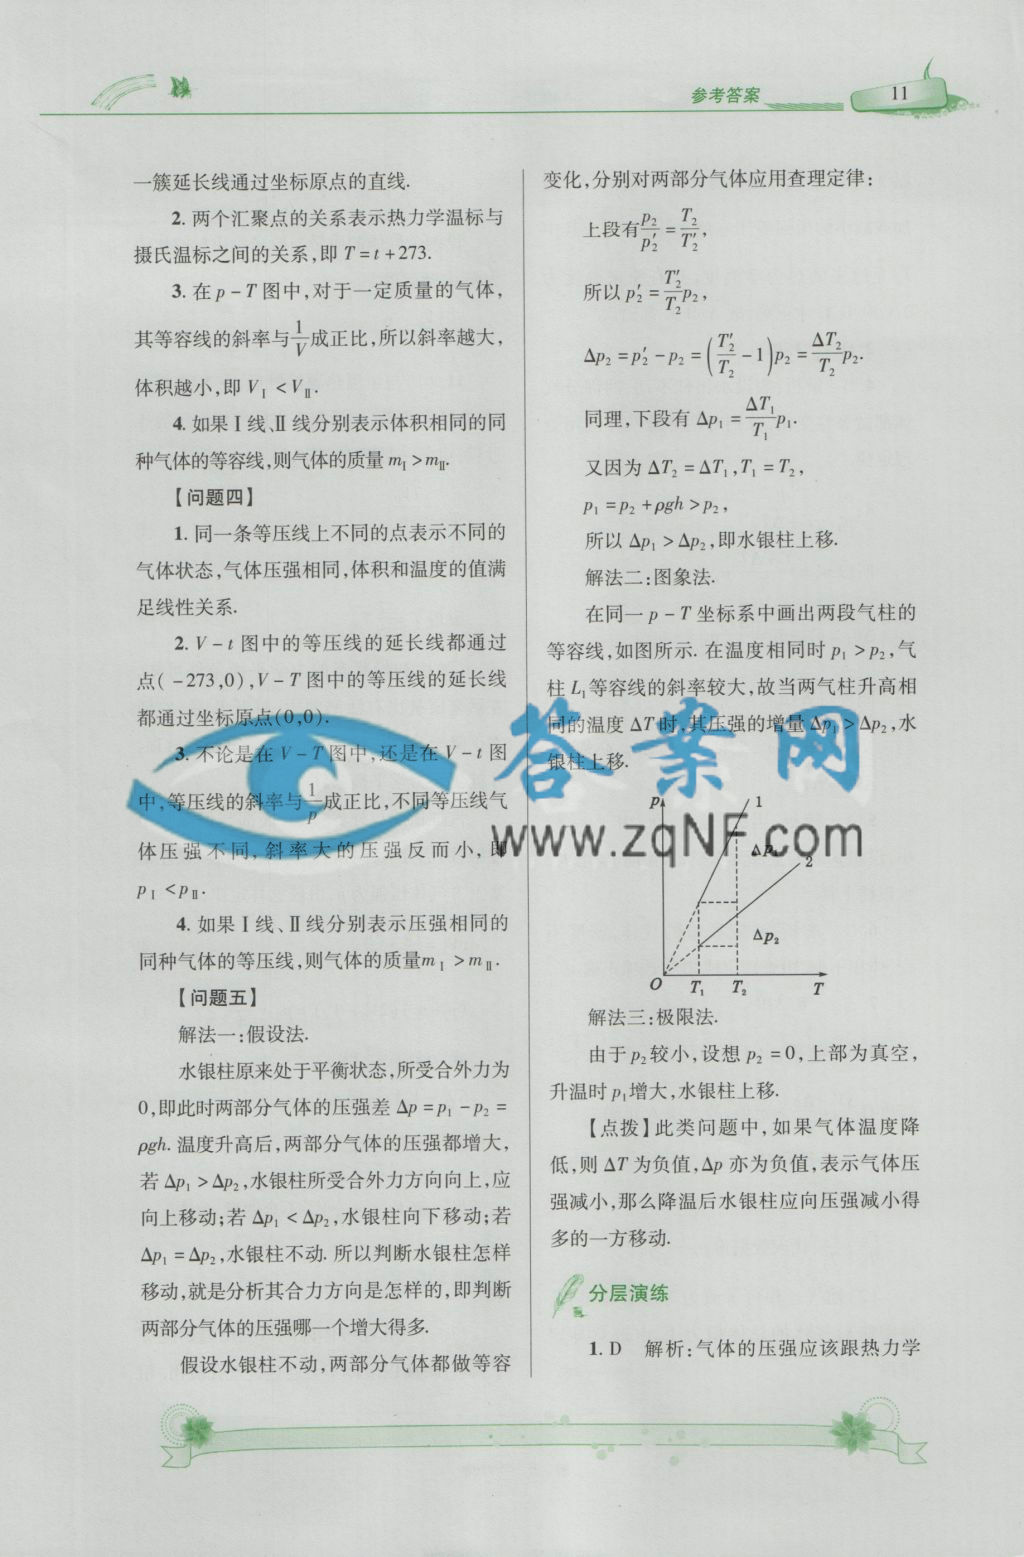 参考答案
11
一簇延长线通过坐标原点的直线.
2. 两个汇聚点的关系表示热力学温标与
摄氏温标之间的关系,即 T=t+273.
3. 在 p-T 图中,对于一定质量的气体,
其等容线的斜率与1/V成正比,所以斜率越大,
体积越小,即 VⅠ<VⅡ.
4. 如果Ⅰ线、Ⅱ线分别表示体积相同的同
种气体的等容线,则气体的质量 mⅠ>mⅡ.
【问题四】
1. 同一条等压线上不同的点表示不同的
气体状态,气体压强相同,体积和温度的值满
足线性关系.
2. V-t 图中的等压线的延长线都通过
点(-273,0),V-T 图中的等压线的延长线
都通过坐标原点(0,0).
3. 不论是在 V-T 图中,还是在 V-t 图
中,等压线的斜率与1/p成正比,不同等压线气
体压强不同,斜率大的压强反而小,即
pⅠ<pⅡ.
4. 如果Ⅰ线、Ⅱ线分别表示压强相同的
同种气体的等压线,则气体的质量mⅠ>mⅡ.
【问题五】
解法一:假设法.
水银柱原来处于平衡状态,所受合外力为
0,即此时两部分气体的压强差 Δp=p₁-p₂=
ρgh. 温度升高后,两部分气体的压强都增大,
若 Δp₁>Δp₂,水银柱所受合外力方向向上,应
向上移动;若 Δp₁<Δp₂,水银柱向下移动;若
Δp₁=Δp₂,水银柱不动. 所以判断水银柱怎样
移动,就是分析其合力方向是怎样的,即判断
两部分气体的压强哪一个增大得多.
假设水银柱不动,两部分气体都做等容
变化,分别对两部分气体应用查理定律:
上段有p₂/p₂′=T₂/T₂′,
所以 p₂′=T₂′/T₂p₂,
Δp₂=p₂′-p₂=(T₂′/T₂-1)p₂=ΔT₂/T₂p₂.
同理,下段有 Δp₁=ΔT₁/T₁p₁.
又因为 ΔT₂=ΔT₁,T₁=T₂,
p₁=p₂+ρgh>p₂,
所以 Δp₁>Δp₂,即水银柱上移.
解法二:图象法.
在同一 p-T 坐标系中画出两段气柱的
等容线,如图所示. 在温度相同时 p₁>p₂,气
柱 L₁等容线的斜率较大,故当两气柱升高相
同的温度 ΔT 时,其压强的增量 Δp₁>Δp₂,水
银柱上移.
p
1
Δp₁
2
Δp₂
O T₁ T₂ T
解法三:极限法.
由于 p₂较小,设想 p₂=0,上部为真空,
升温时 p₁增大,水银柱上移.
【点拨】此类问题中,如果气体温度降
低,则 ΔT 为负值,Δp 亦为负值,表示气体压
强减小,那么降温后水银柱应向压强减小得
多的一方移动.
分层演练
1. D 解析:气体的压强应该跟热力学
答案网
www.zqNF.com